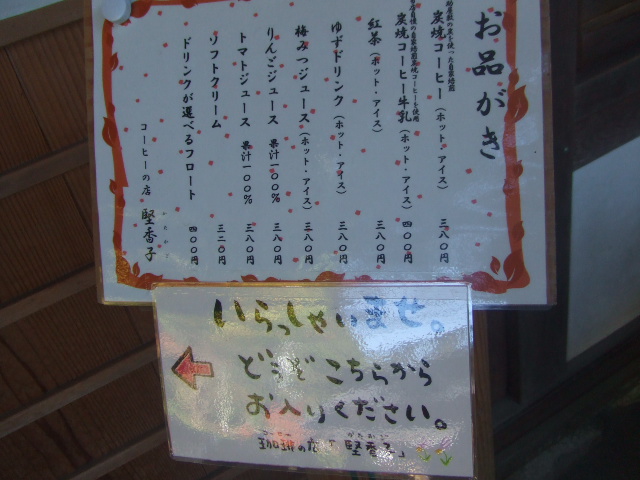 お品がき
炭焼コーヒー（ホット・アイス） 三八〇円
炭焼コーヒー牛乳（ホット・アイス） 四〇〇円
紅茶（ホット・アイス） 三八〇円
ゆずドリンク（ホット・アイス） 三八〇円
梅みつジュース（ホット・アイス） 三八〇円
りんごジュース 果汁一〇〇％ 三八〇円
トマトジュース 果汁一〇〇％ 三八〇円
ソフトクリーム 三二〇円
ドリンクが選べるフロート 四〇〇円
コーヒーの店 堅香子
いらっしゃいませ。
どうぞこちらから
お入りください。
珈琲の店「堅香子」